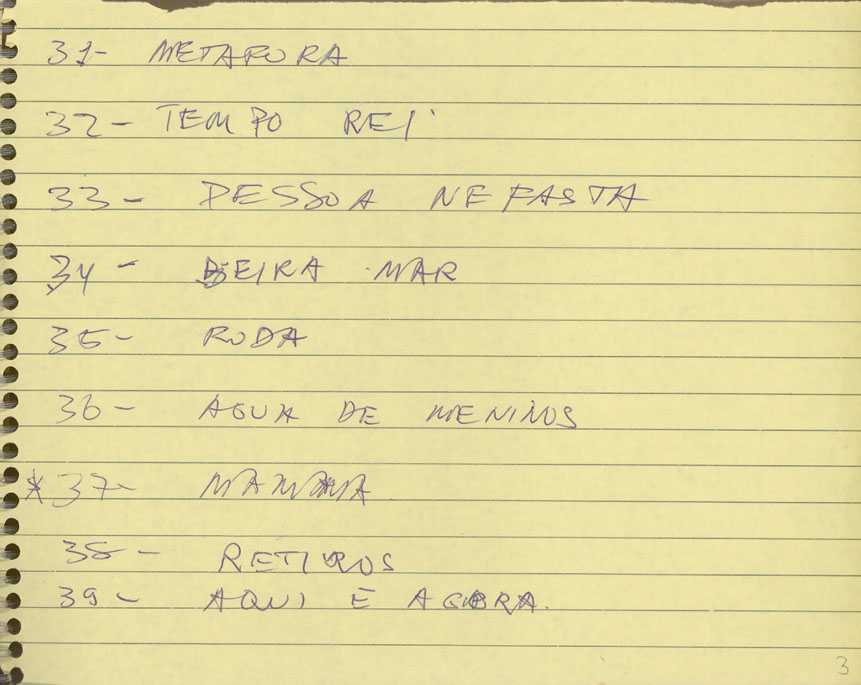 31- METAFORA
32- TEMPO REI
33- PESSOA NEFASTA
34- BEIRA MAR
35- RODA
36- ÁGUA DE MENINOS
*37- MAMMA
38- RETIROS
39- AQUI E AGORA.
3